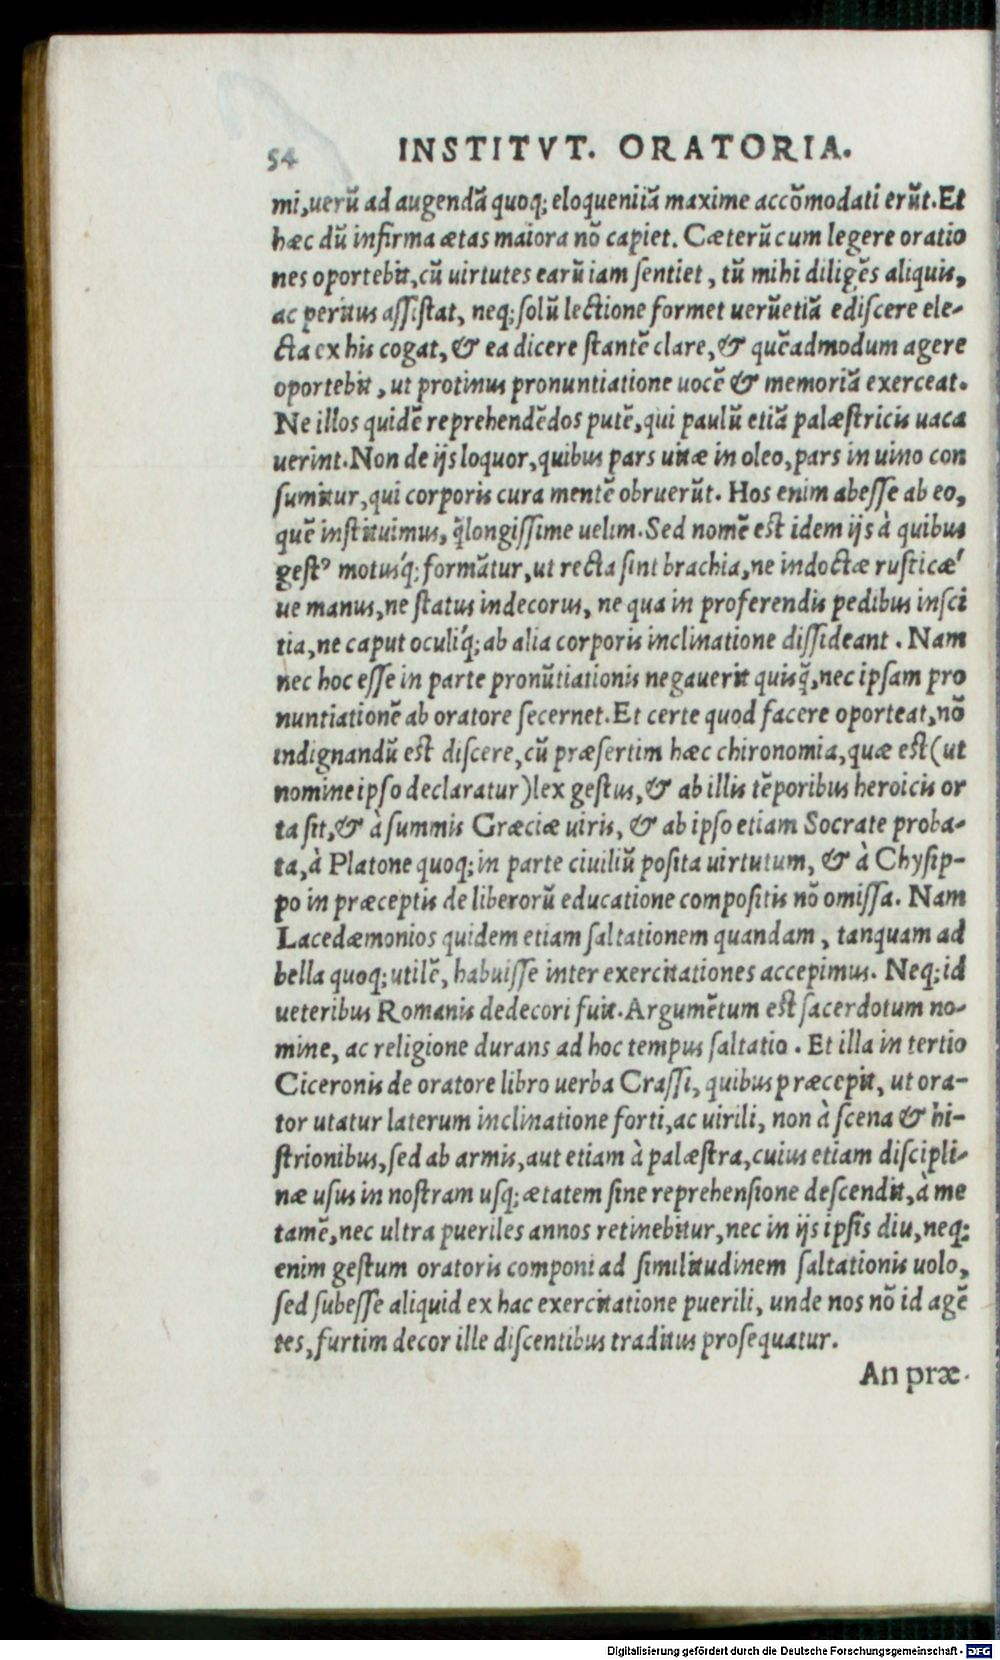 54 INSTITVT. ORATORIA.
mi,uerũ ad augendã quoq; eloqueniiã maxime accõmodati erũt.Et
hæc dũ infirma ætas maiora nõ capiet. Cæterũ cum legere oratio
nes oportebit,cũ uirtutes earũ iam ſentiet, tũ mihi diligẽs aliquis,
ac peritus aſſiſtat, neq; ſolũ lectione formet uerũetiã ediſcere ele-
cta ex his cogat, & ea dicere ſtantẽ clare, & quẽadmodum agere
oportebit, ut protinus pronuntiatione uocẽ & memoriã exerceat.
Ne illos quidẽ reprehendẽdos putẽ,qui paulũ etiã palæſtricis uaca
uerint.Non de ijs loquor,quibus pars uitæ in oleo,pars in uino con
ſumitur,qui corporis cura mentẽ obruerũt. Hos enim abeſſe ab eo,
quẽ inſtituimus, q̃longiſſime uelim.Sed nomẽ est idem ijs à quibus
geſtꝰ motusq́; formãtur, ut recta ſint brachia,ne indoctæ ruſticæ'
ue manus,ne ſtatus indecorus, ne qua in proferendis pedibus inſci
tia,ne caput oculiq́; ab alia corporis inclinatione diſſideant. Nam
nec hoc eſſe in parte pronũtiationis negauerit quisq̃,nec ipſam pro
nuntiationẽ ab oratore ſecernet.Et certe quod facere oporteat,nõ
indignandũ est diſcere,cũ præſertim hæc chironomia,quæ est(ut
nomine ipſo declaratur)lex geſtus, & ab illis tẽporibus heroicis or
ta ſit, & à ſummis Græciæ uiris, & ab ipſo etiam Socrate proba-
ta,à Platone quoq; in parte ciuiliũ poſita uirtutum, & à Chyſip-
po in præceptis de liberorũ educatione compoſitis nõ omiſſa. Nam
Lacedæmonios quidem etiam ſaltationem quandam, tanquam ad
bella quoq; utilẽ, habuiſſe inter exercitationes accepimus. Neq; id
ueteribus Romanis dedecori fuit.Argumẽtum est ſacerdotum no-
mine, ac religione durans ad hoc tempus ſaltatio. Et illa in tertio
Ciceronis de oratore libro uerba Craſſi, quibus præcepit, ut ora-
tor utatur laterum inclinatione forti,ac uirili, non à ſcena & hi-
ſtrionibus,ſed ab armis,aut etiam à palæſtra,cuius etiam diſcipli-
næ uſus in noſtram uſq; ætatem ſine reprehenſione deſcendit,à me
tamẽ,nec ultra pueriles annos retinebitur,nec in ijs ipſis diu,neq;
enim geſtum oratoris componi ad ſimilitudinem ſaltationis uolo,
ſed ſubeſſe aliquid ex hac exercitatione puerili, unde nos nõ id agẽ
tes,furtim decor ille diſcentibus traditus proſequatur.
An præ-
Digitalisierung gefördert durch die Deutsche Forschungsgemeinschaft - DFG